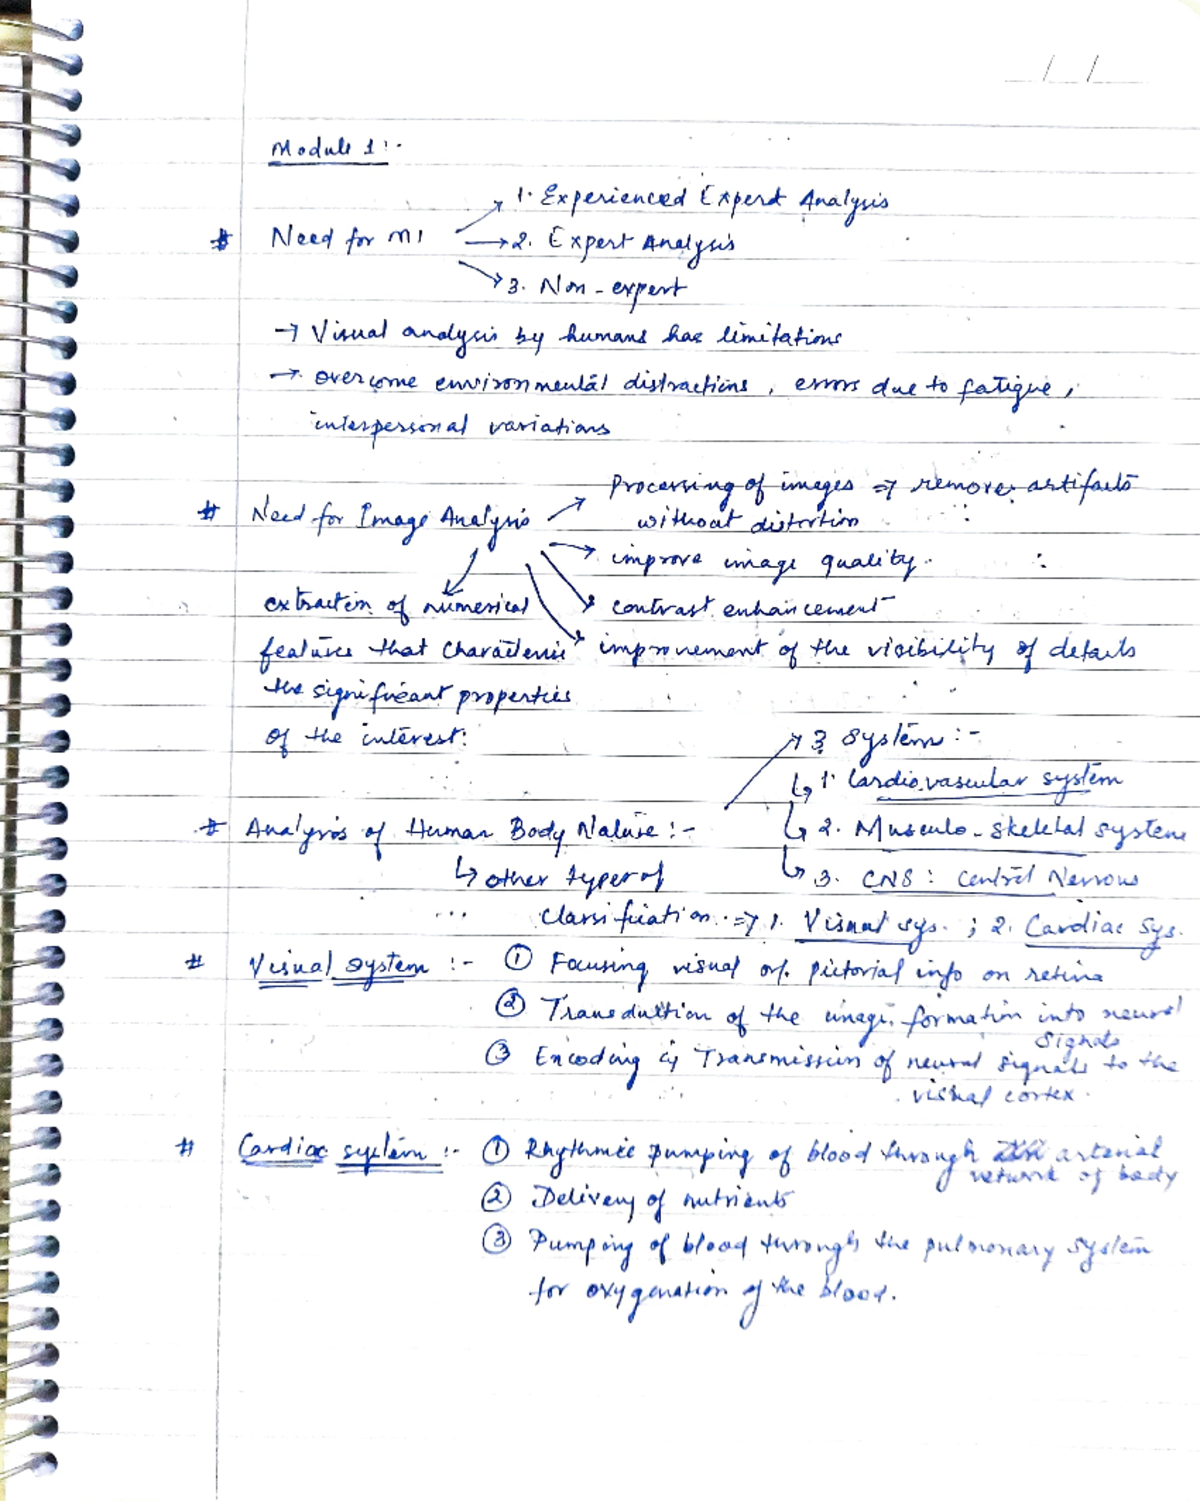 / /
Module 1:-
1. Experienced Expert Analysis
# Need for MI → 2. Expert Analysis
3. Non-expert
→ Visual analysis by humans has limitations
→ overcome environmental distractions, errors due to fatigue,
interpersonal variations
Processing of images ⇒ remove artifacts
# Need for Image Analysis without distortion
→ improve image quality.
extraction of numerical → contrast enhancement
features that characterize improvement of the visibility of details
the significant properties
of the interest. → 3 system:-
↳ 1. Cardiovascular system
# Analysis of Human Body Nature:- ↳ 2. Musculo-skeletal system
↳ other types of ↳ 3. CNS: Central Nervous
classification ⇒ 1. Visual sys. ; 2. Cardiac sys.
# Visual system :- ① Focusing visual or pictorial info on retina
② Transduction of the image formation into neural
signals
③ Encoding & Transmission of neural signals to the
visual cortex.
# Cardiac system :- ① Rhythmic pumping of blood through arterial
network of body
② Delivery of nutrients
③ Pumping of blood through the pulmonary system
for oxygenation of the blood.